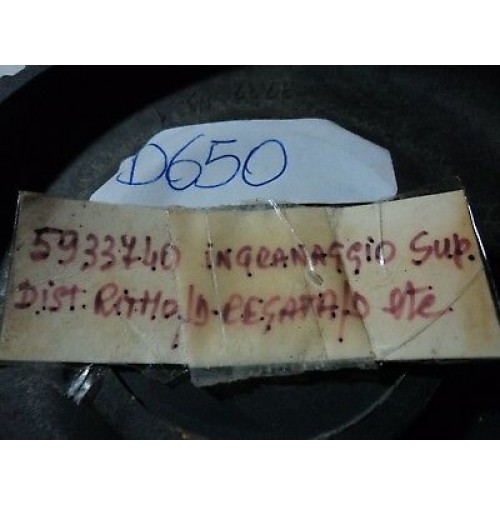 D650
5933740 INGRANAGGIO Sup.
DIST. RITMO/D-REGATA/D etc.